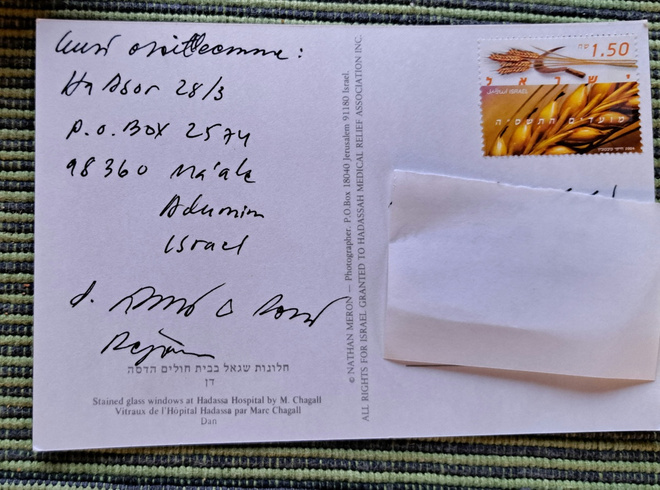 Uusi osoitteemme:
Ha Asor 28/3
P.O. BOX 2574
98360 Ma'ale
Adumim
Israel
חלונות שגאל בבית חולים הדסה
דן
Stained glass windows at Hadassa Hospital by M. Chagall
Vitraux de l'Hôpital Hadassa par Marc Chagall
Dan
© NATHAN MERON — Photographer. P.O.Box 18040 Jerusalem 91180 Israel.
ALL RIGHTS FOR ISRAEL GRANTED TO HADASSAH MEDICAL RELIEF ASSOCIATION INC.
1.50
ישראל
ISRAEL اسرائيل
מועדים התשס"ה